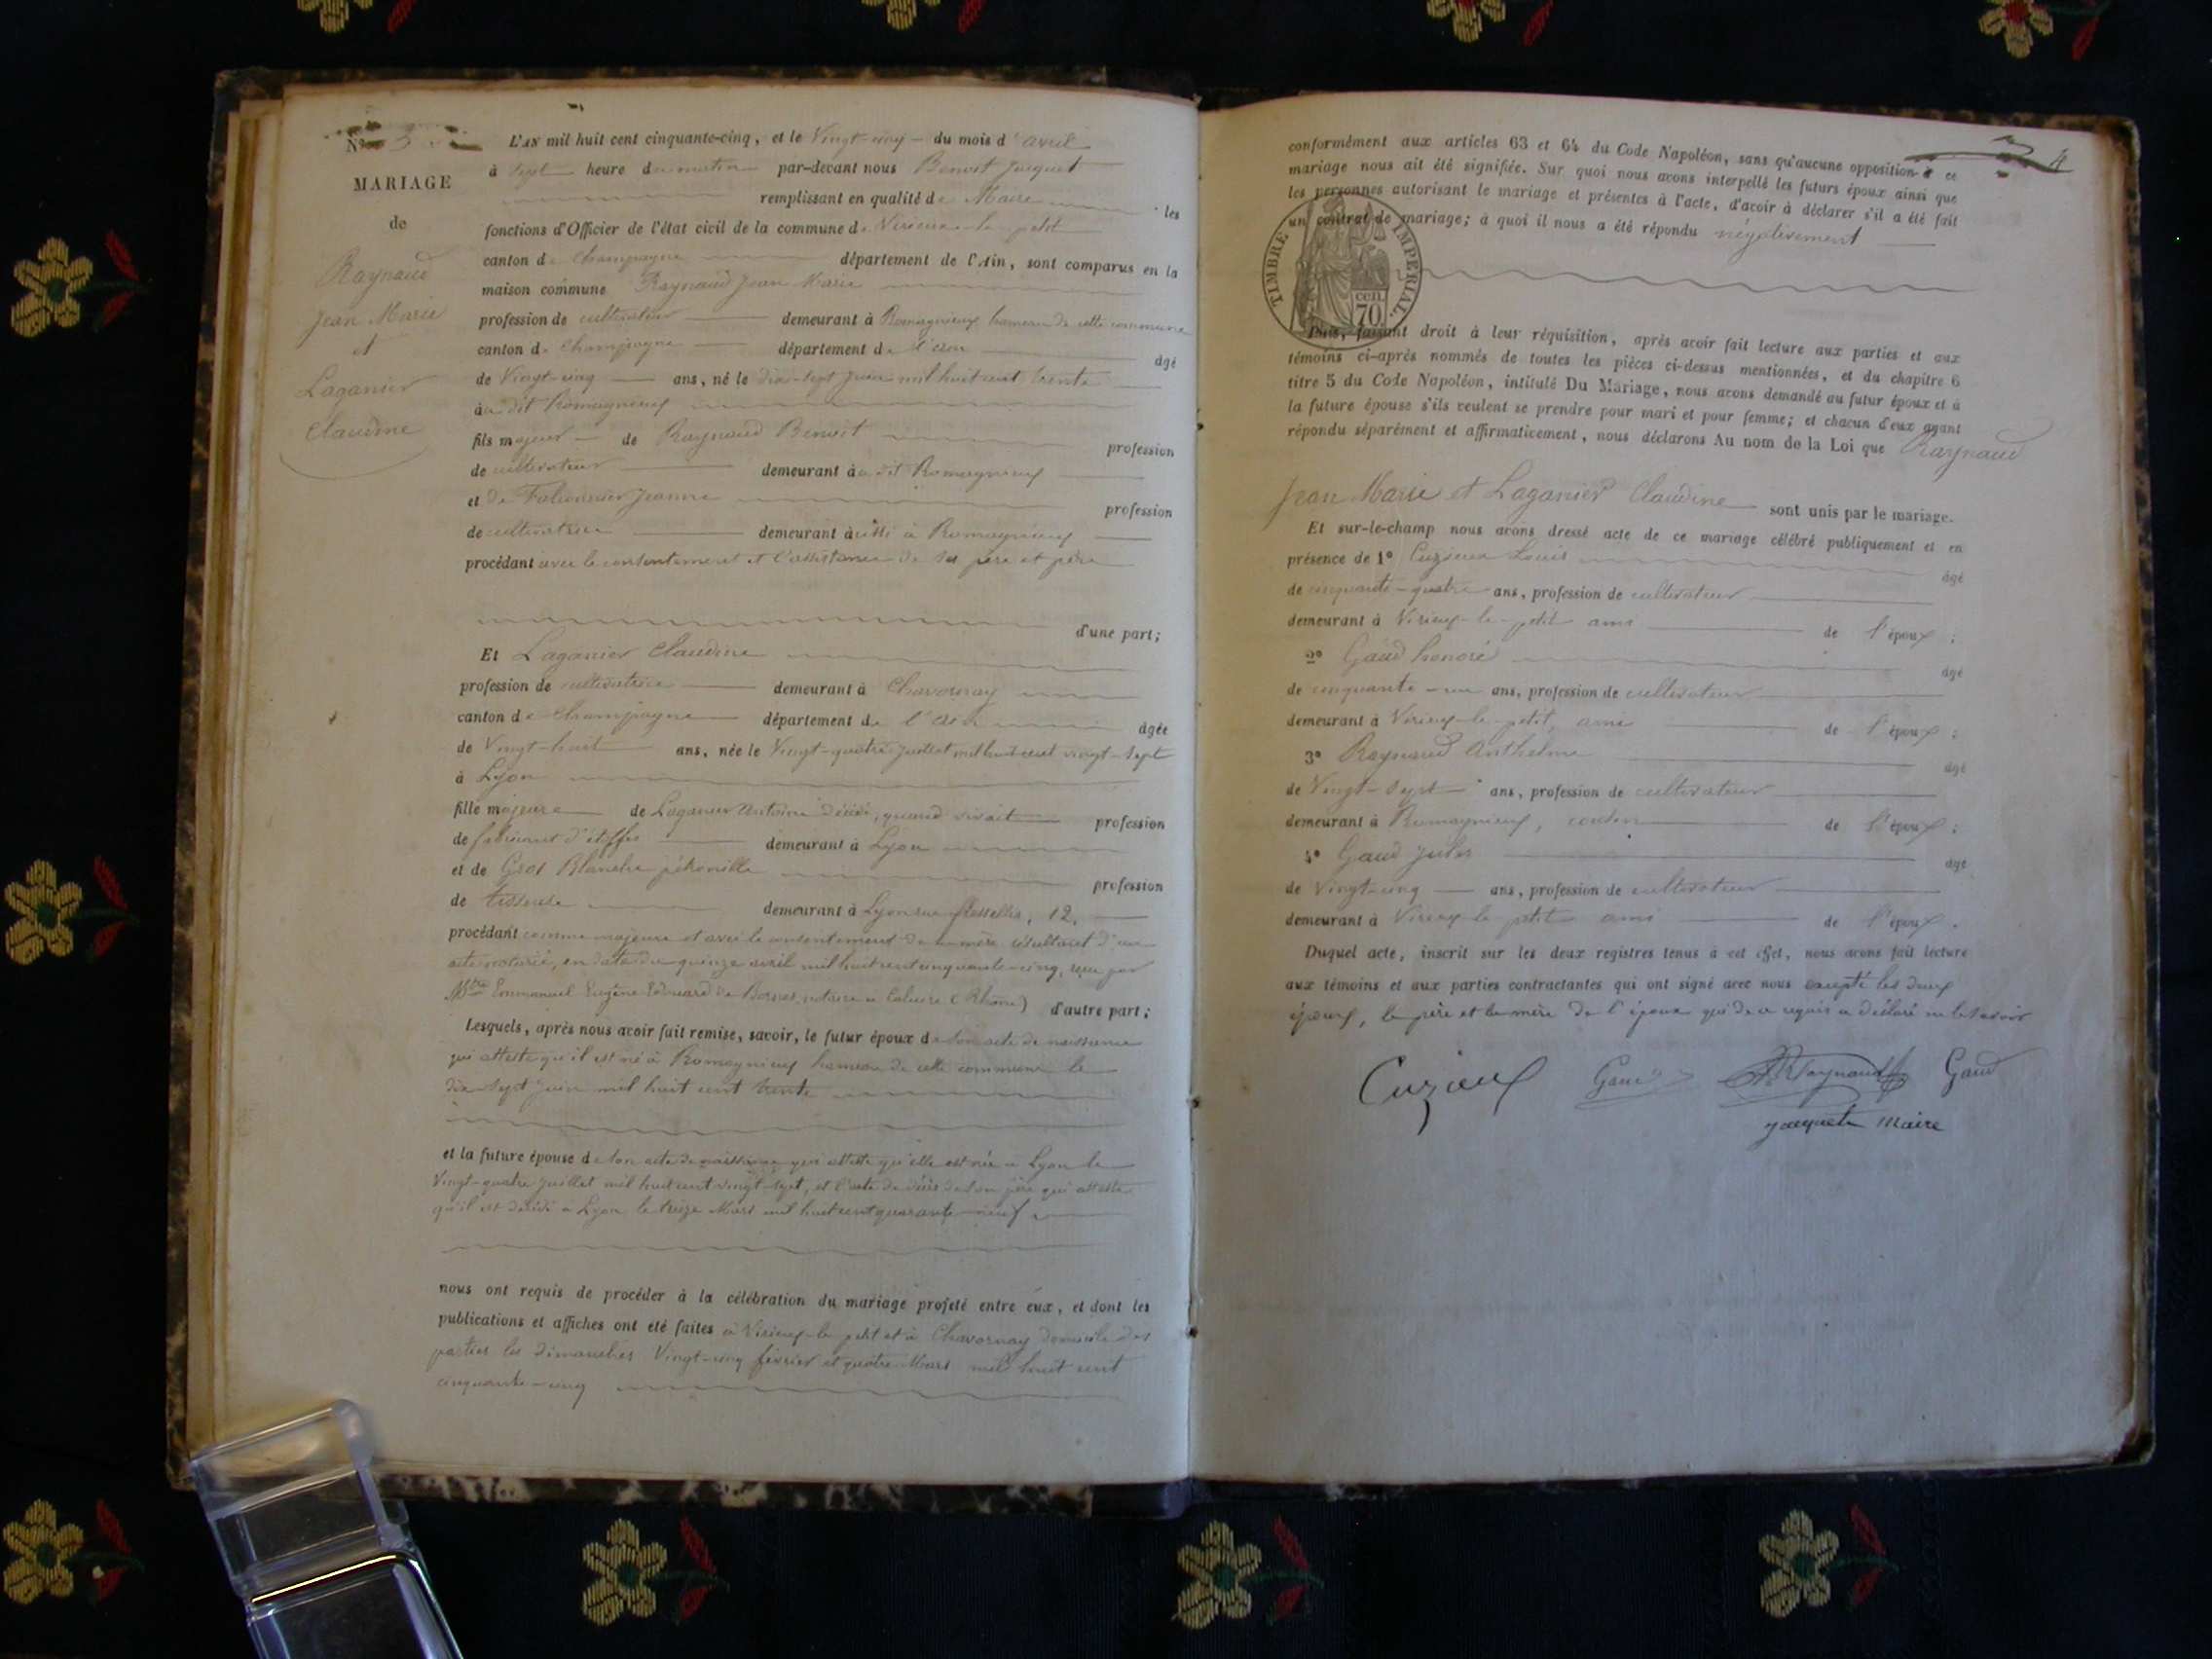 N° 3
MARIAGE
de
Raynaud
Jean Marie
et
Laganier
Claudine
L'AN mil huit cent cinquante-cinq, et le Vingt-cinq du mois d'avril
à sept heure du matin par-devant nous Benoit Jacquet
remplissant en qualité de Maire les
fonctions d'Officier de l'état civil de la commune de Virieux-le-petit
canton de Champagne département de l'Ain, sont comparus en la
maison commune Raynaud Jean Marie
profession de cultivateur demeurant à Romagnieux hameau de cette commune
canton de Champagne département de l'ain âgé
de Vingt-cinq ans, né le dix-sept juin mil huit cent trente
au dit Romagnieux
fils majeur de Raynaud Benoit profession
de cultivateur demeurant au dit Romagnieux
et de Jeanne profession
de cultivatrice demeurant aussi à Romagnieux
procédant avec le consentement et l'assistance de ses père et mère
d'une part;
Et Laganier Claudine
profession de cultivatrice demeurant à Chavornay
canton de Champagne département de l'ain âgée
de Vingt-huit ans, née le Vingt-quatre juillet mil huit cent vingt-sept
à Lyon
fille majeure de Laganier Antoine décédé, quand vivait profession
de fabricant d'étoffes demeurant à Lyon
et de Gros Blanche pétronille profession
de tisseuse demeurant à Lyon rue Tessellis, 12,
procédant comme majeure et avec le consentement de sa mère résultant d'un
acte notarié, en date du quinze avril mil huit cent cinquante-cinq, reçu par
Mtre Emmanuel Eugène Edouard de notaire à Caluire (Rhône) d'autre part;
Lesquels, après nous avoir fait remise, savoir, le futur époux de son acte de naissance
qui atteste qu'il est né à Romagnieux hameau de cette commune le
dix-sept juin mil huit cent trente
et la future épouse de son acte de naissance qui atteste qu'elle est née à Lyon le
Vingt-quatre juillet mil huit cent vingt-sept, et l'acte de décès de son père qui atteste
qu'il est décédé à Lyon le treize Mars mil huit cent quarante-neuf
nous ont requis de procéder à la célébration du mariage projeté entre eux, et dont les
publications et affiches ont été faites à Virieux-le-petit et à Chavornay domicile des
parties les Dimanches Vingt-cinq février et quatre Mars mil huit cent
cinquante-cinq
4
conformément aux articles 63 et 64 du Code Napoléon, sans qu'aucune opposition à ce
mariage nous ait été signifiée. Sur quoi nous avons interpellé les futurs époux ainsi que
les personnes autorisant le mariage et présentes à l'acte, d'avoir à déclarer s'il a été fait
un contrat de mariage; à quoi il nous a été répondu négativement
TIMBRE IMPERIAL.
70 cen.
Puis, faisant droit à leur réquisition, après avoir fait lecture aux parties et aux
témoins ci-après nommés de toutes les pièces ci-dessus mentionnées, et du chapitre 6
titre 5 du Code Napoléon, intitulé Du Mariage, nous avons demandé au futur époux et à
la future épouse s'ils veulent se prendre pour mari et pour femme; et chacun d'eux ayant
répondu séparément et affirmativement, nous déclarons Au nom de la Loi que Raynaud
Jean Marie et Laganier Claudine sont unis par le mariage.
Et sur-le-champ nous avons dressé acte de ce mariage célébré publiquement et en
présence de 1° Cuzieux Louis âgé
de cinquante-quatre ans, profession de cultivateur
demeurant à Virieux-le-petit ami de l'époux;
2° Gaud honoré âgé
de cinquante-un ans, profession de cultivateur
demeurant à Virieux-le-petit, ami de l'époux;
3° Raynaud Anthelme âgé
de Vingt-sept ans, profession de cultivateur
demeurant à Romagnieux, cousin de l'époux;
4° Gaud Jules âgé
de Vingt-cinq ans, profession de cultivateur
demeurant à Virieux-le-petit ami de l'époux.
Duquel acte, inscrit sur les deux registres tenus à cet effet, nous avons fait lecture
aux témoins et aux parties contractantes qui ont signé avec nous excepté les deux
époux, le père et la mère de l'époux qui de ce requis a déclaré ne le savoir
Cuzieux Gaud Raynaud Gaud
Jacquet Maire